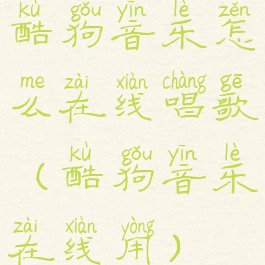 kù gǒu yīn lè zěn
酷狗音乐怎
me zài xiàn chàng gē
么在线唱歌
kù gǒu yīn lè
（酷狗音乐
zài xiàn yòng
在线用）